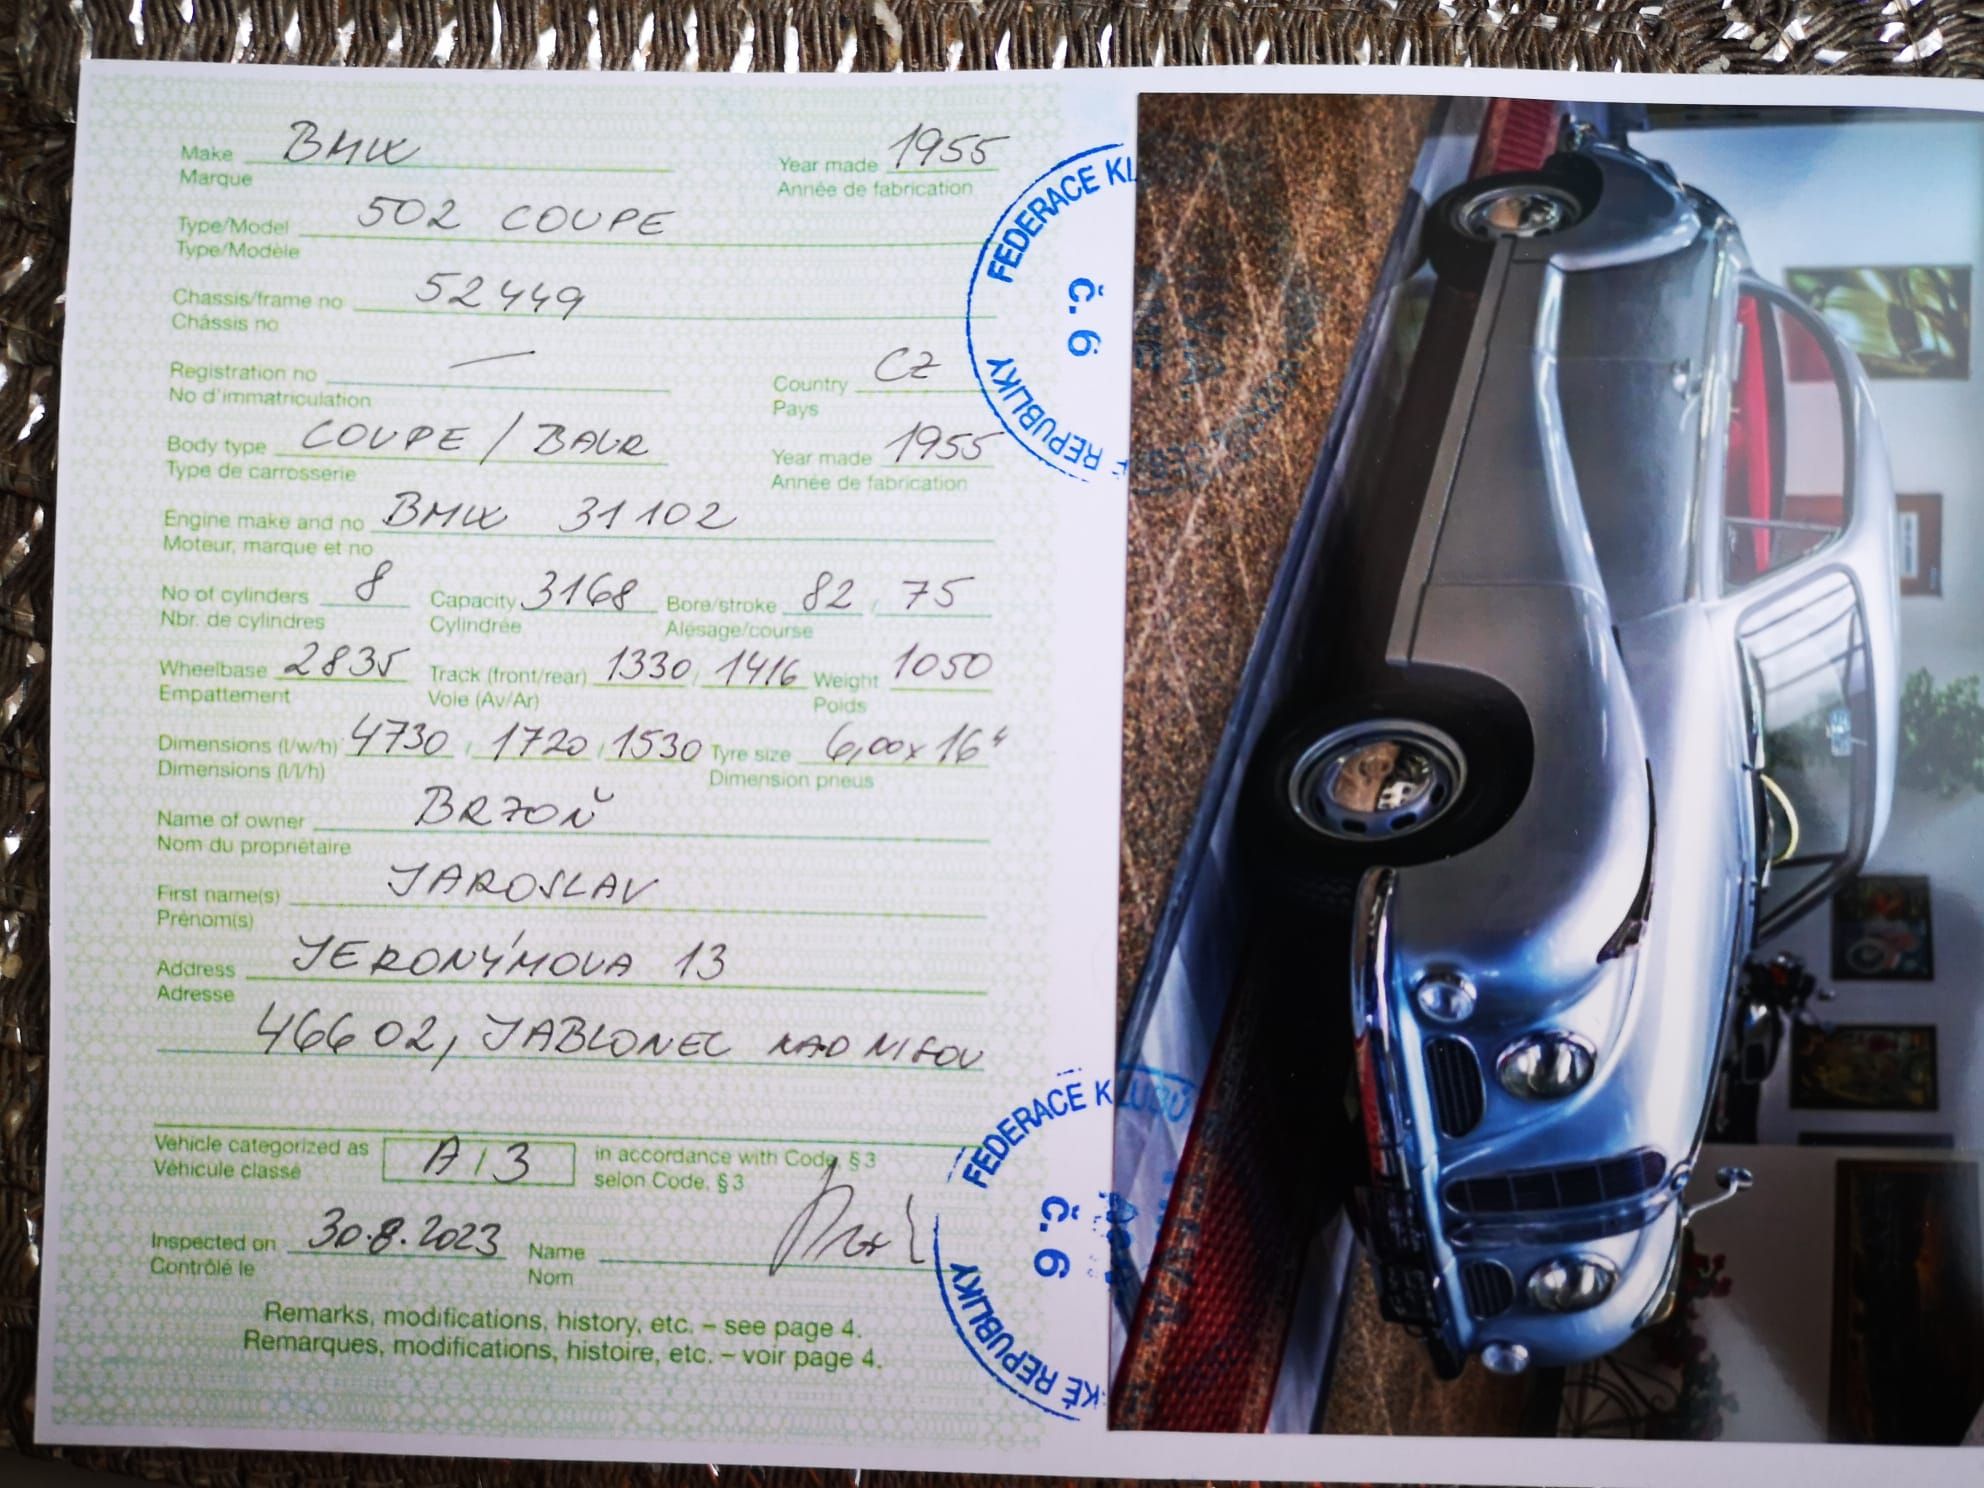 Make BMW Year made 1955
Marque Année de fabrication
Type/Model 502 COUPE
Type/Modèle
Chassis/frame no 52449
Châssis no
Registration no — Country CZ
No d'immatriculation Pays
Body type COUPE / BAUR Year made 1955
Type de carrosserie Année de fabrication
Engine make and no BMW 31102
Moteur, marque et no
No of cylinders 8 Capacity 3168 Bore/stroke 82 / 75
Nbr. de cylindres Cylindrée Alésage/course
Wheelbase 2835 Track (front/rear) 1330 / 1416 Weight 1050
Empattement Voie (Av/Ar) Poids
Dimensions (l/w/h) 4730 / 1720 / 1530 Tyre size 6,00x16"
Dimensions (l/l/h) Dimension pneus
Name of owner BRZOŇ
Nom du propriétaire
First name(s) JAROSLAV
Prénom(s)
Address JERONÝMOVA 13
Adresse
46602, JABLONEC NAD NISOU
Vehicle categorized as A/3 in accordance with Code, § 3
Véhicule classé selon Code, § 3
Inspected on 30.8.2023 Name
Contrôlé le Nom
Remarks, modifications, history, etc. – see page 4.
Remarques, modifications, histoire, etc. – voir page 4.
FEDERACE KL
č. 6
É REPUBLIKY
FEDERACE KLUBŮ
č. 6
KÉ REPUBLIKY